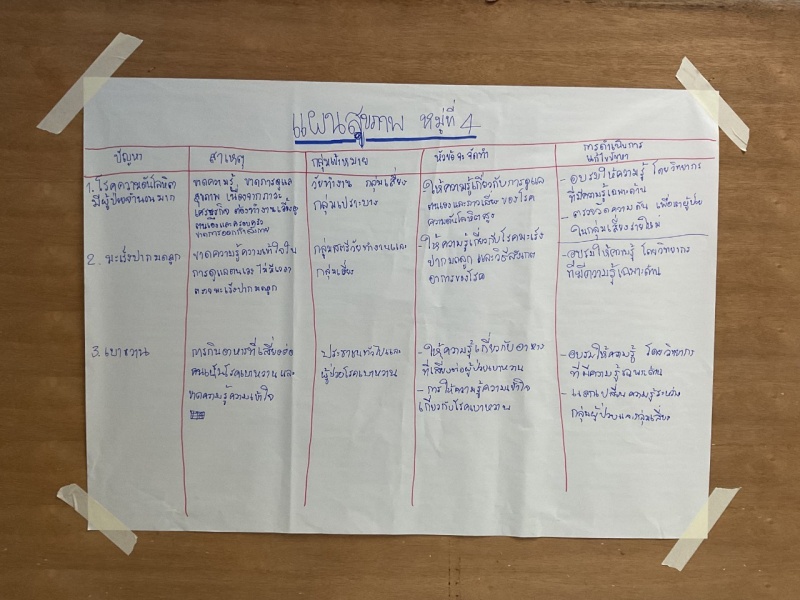 แผนสุขภาพ หมู่ที่ 4
ปัญหา
สาเหตุ
กลุ่มเป้าหมาย
หัวข้อ จะ จัดทำ
การดำเนินการ
แก้ไขปัญหา
1. โรคความดันโลหิต
มีผู้ป่วยจำนวนมาก
ขาดความรู้ ขาดการดูแล
สุขภาพ เนื่องจากภาวะ
เศรษฐกิจ ต้องทำงานเลี้ยงดู
ตนเองและครอบครัว
ขาดการออกกำลังกาย
วัยทำงาน กลุ่มเสี่ยง
กลุ่มเปราะบาง
- ให้ความรู้เกี่ยวกับการดูแล
ตนเองและภาวะเสี่ยง ของโรค
ความดันโลหิตสูง
- อบรมให้ความรู้ โดยวิทยากร
ที่มีความรู้เฉพาะด้าน
- ตรวจวัดความดัน เพื่อหาผู้ป่วย
ในกลุ่มเสี่ยงรายใหม่
2. มะเร็งปากมดลูก
ขาดความรู้ความเข้าใจใน
การดูแลตนเอง ไม่มีเวลา
ตรวจมะเร็งปากมดลูก
กลุ่มสตรีวัยทำงานและ
กลุ่มเสี่ยง
- ให้ความรู้เกี่ยวกับโรคมะเร็ง
ปากมดลูก และวิธีสังเกต
อาการของโรค
อบรมให้ความรู้ โดยวิทยากร
ที่มีความรู้เฉพาะด้าน
3. เบาหวาน
การกินอาหารที่เสี่ยงต่อ
คนเป็นโรคเบาหวาน และ
ขาดความรู้ความเข้าใจ
ประชาชนทั่วไปและ
ผู้ป่วยโรคเบาหวาน
- ให้ความรู้เกี่ยวกับอาหาร
ที่เสี่ยงต่อผู้ป่วยเบาหวาน
- การให้ความรู้ความเข้าใจ
เกี่ยวกับโรคเบาหวาน
- อบรมให้ความรู้ โดยวิทยากร
ที่มีความรู้เฉพาะด้าน
- แลกเปลี่ยนความรู้ระหว่าง
กลุ่มผู้ป่วยและกลุ่มเสี่ยง